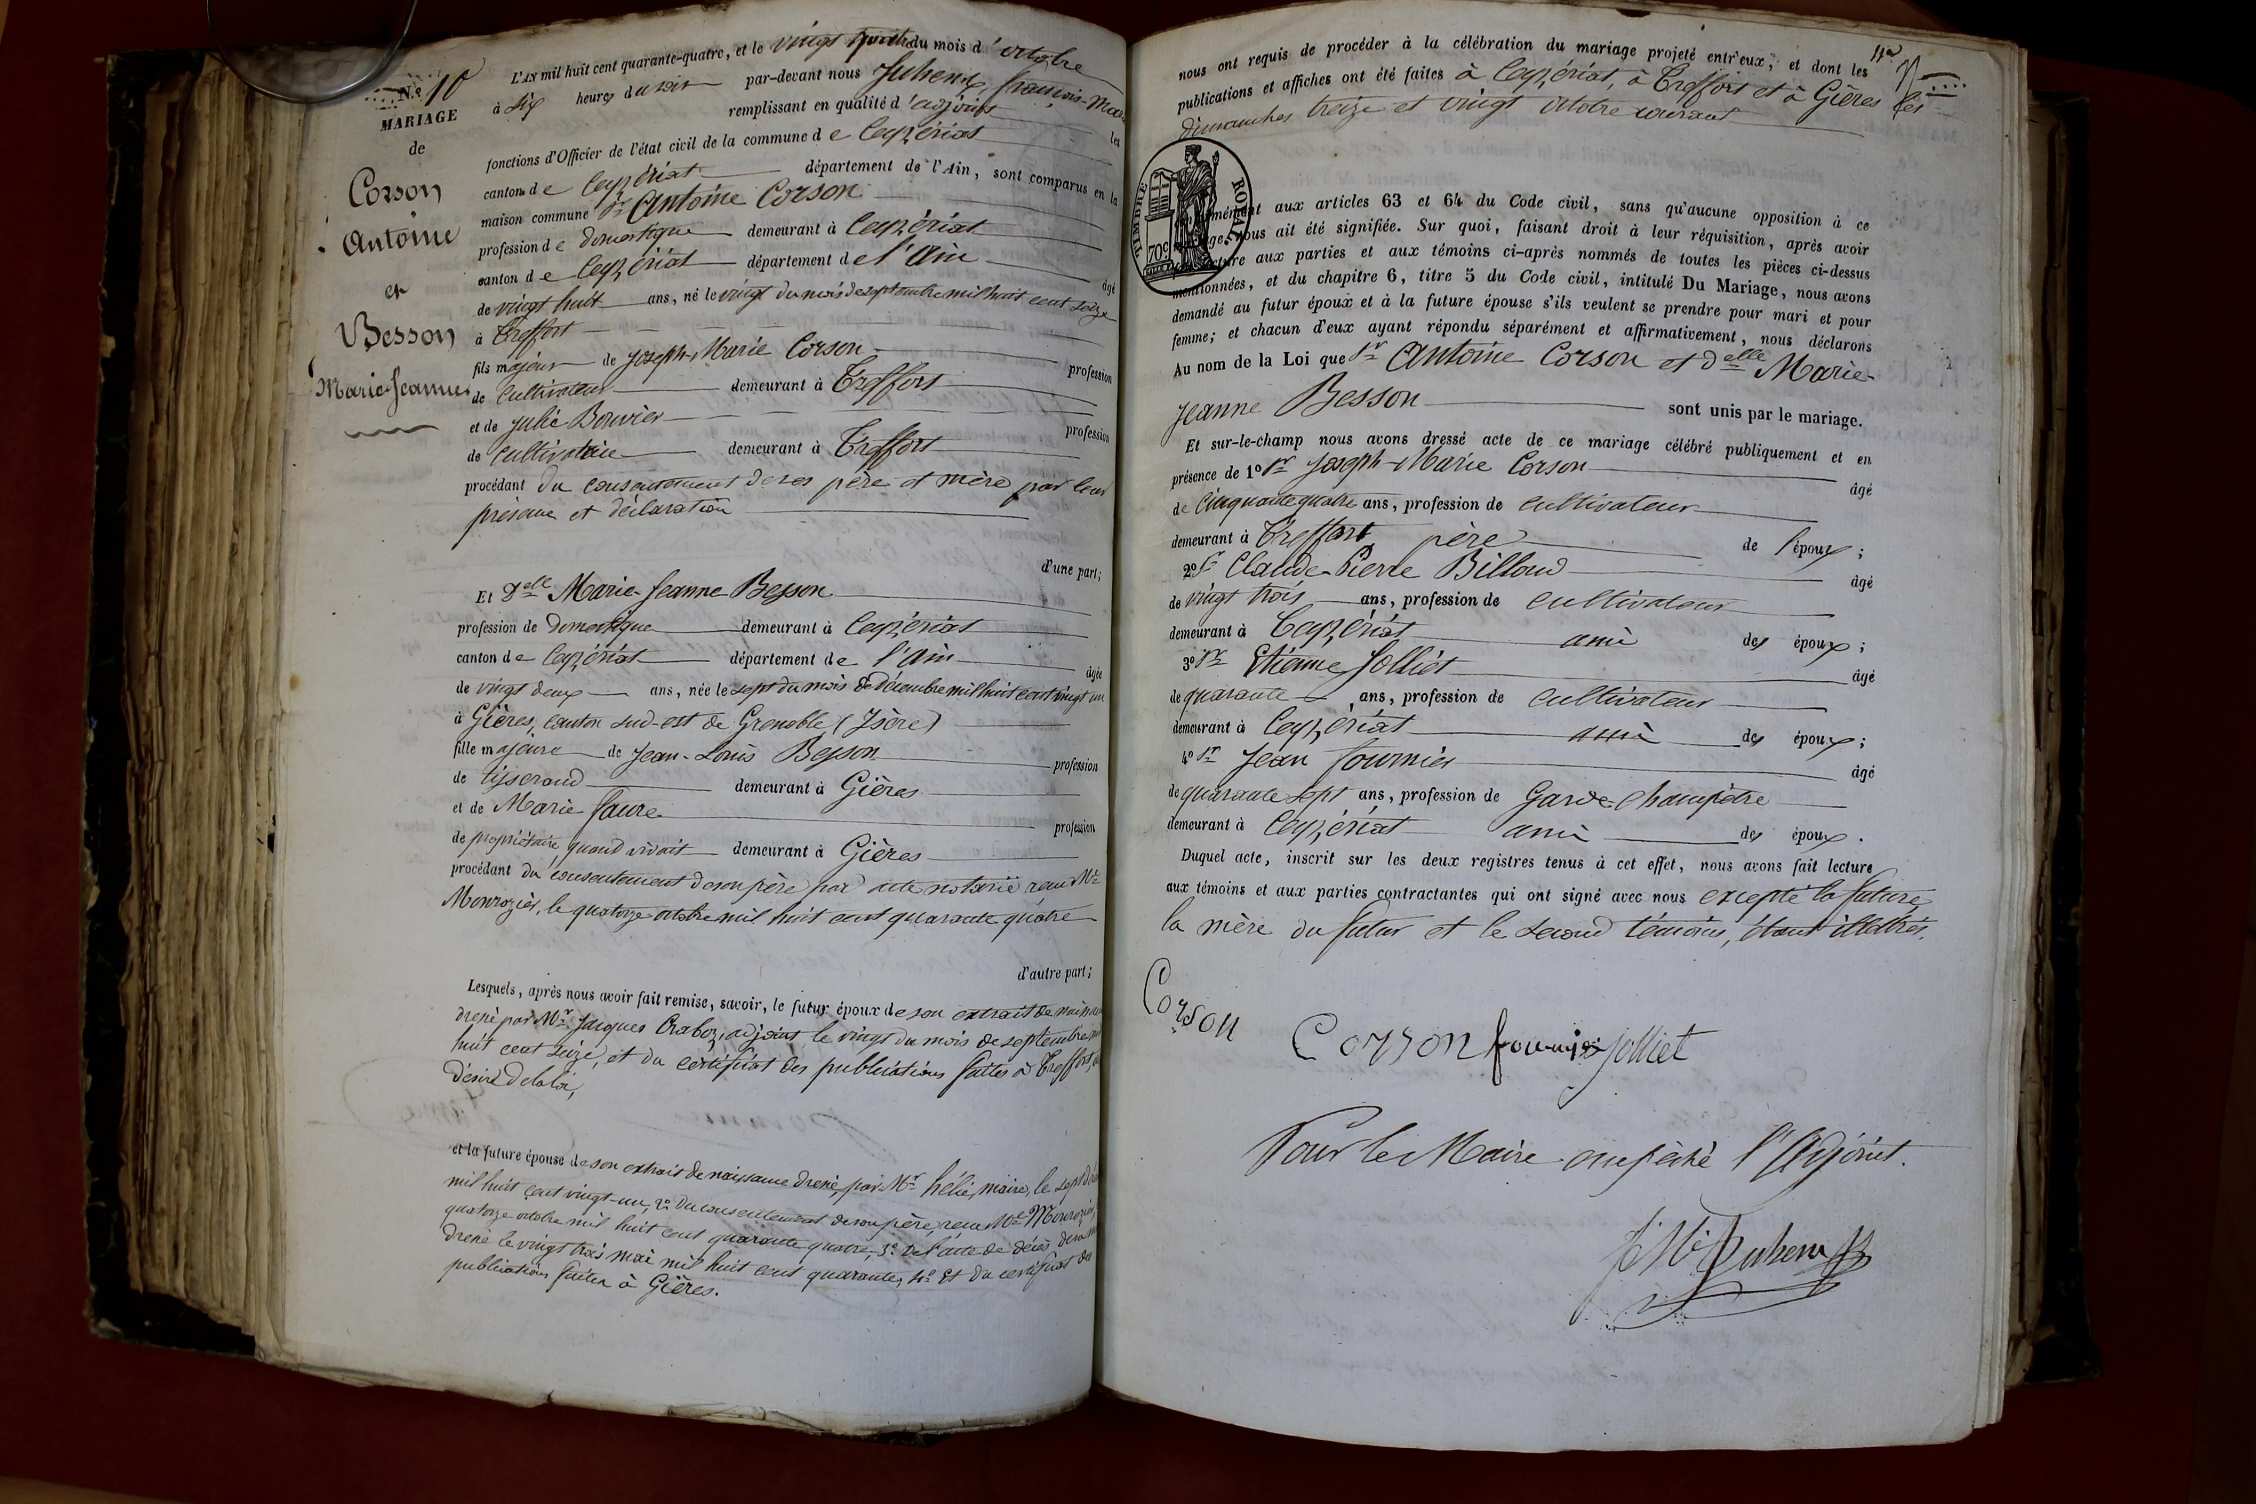 N.º 10
MARIAGE
de
Corson
Antoine
et
Besson
Marie-Jeanne
L'AN mil huit cent quarante-quatre, et le vingt quatre du mois d'octobre
à six heures du soir par-devant nous Juhem, françois-Marie
remplissant en qualité d'adjoint les
fonctions d'Officier de l'état civil de la commune de Ceyzériat
canton de Ceyzériat département de l'Ain, sont comparus en la
maison commune Sr Antoine Corson
profession de domestique demeurant à Ceyzériat
canton de Ceyzériat département de l'Ain âgé
de vingt huit ans, né le vingt du mois de septembre mil huit cent seize
à Treffort
fils majeur de Joseph-Marie Corson profession
de cultivateur demeurant à Treffort
et de Julie Bouvier profession
de cultivatrice demeurant à Treffort
procédant du consentement de ses père et mère par leur
présence et déclaration
d'une part;
Et Delle Marie-Jeanne Besson
profession de domestique demeurant à Ceyzériat
canton de Ceyzériat département de l'Ain âgée
de vingt deux ans, née le sept du mois de décembre mil huit cent vingt un
à Gières, canton sud-est de Grenoble (Isère)
fille majeure de Jean-Louis Besson profession
de tisserand demeurant à Gières
et de Marie faure profession
de propriétaire quand vivait demeurant à Gières
procédant du consentement de son père par acte notarié reçu Me
Monrozier, le quatorze octobre mil huit cent quarante quatre
d'autre part;
Lesquels, après nous avoir fait remise, savoir, le futur époux de son extrait de naissance
dressé par Mr Jacques adjoint le vingt du mois de septembre mil
huit cent seize, et du certificat des publications faites à Treffort,
désiré de la loi,
et la future épouse de son extrait de naissance dressé par Mr hélie, maire, le sept
mil huit cent vingt-un, 2º du consentement de son père, reçu Me Monrozier,
quatorze octobre mil huit cent quarante quatre, 3º de l'acte de décès de sa
dressé le vingt trois mai mil huit cent quarante, 4º Et du certificat des
publications faites à Gières.
nous ont requis de procéder à la célébration du mariage projeté entr'eux, et dont les
publications et affiches ont été faites à Ceyzériat, à Treffort et à Gières les
dimanches treize et vingt octobre courant
TIMBRE ROYAL
70c
aux articles 63 et 64 du Code civil, sans qu'aucune opposition à ce
nous ait été signifiée. Sur quoi, faisant droit à leur réquisition, après avoir
aux parties et aux témoins ci-après nommés de toutes les pièces ci-dessus
mentionnées, et du chapitre 6, titre 5 du Code civil, intitulé Du Mariage, nous avons
demandé au futur époux et à la future épouse s'ils veulent se prendre pour mari et pour
femme; et chacun d'eux ayant répondu séparément et affirmativement, nous déclarons
Au nom de la Loi que Sr Antoine Corson et Delle Marie-
Jeanne Besson sont unis par le mariage.
Et sur-le-champ nous avons dressé acte de ce mariage célébré publiquement et en
présence de 1º Sr Joseph-Marie Corson âgé
de cinquante quatre ans, profession de cultivateur
demeurant à Treffort père de l'époux;
2º Sr Claude-Pierre Billoud âgé
de vingt trois ans, profession de cultivateur
demeurant à Ceyzériat ami des époux;
3º Sr Etienne Jolliet âgé
de quarante ans, profession de cultivateur
demeurant à Ceyzériat ami des époux;
4º Sr Jean fournier âgé
de quarante sept ans, profession de Garde-Champêtre
demeurant à Ceyzériat ami des époux.
Duquel acte, inscrit sur les deux registres tenus à cet effet, nous avons fait lecture
aux témoins et aux parties contractantes qui ont signé avec nous excepté la future,
la mère du futur et le second témoins, étant illettrés.
Corson
Corson fournier Jolliet
Pour le Maire empêché l'Adjoint.